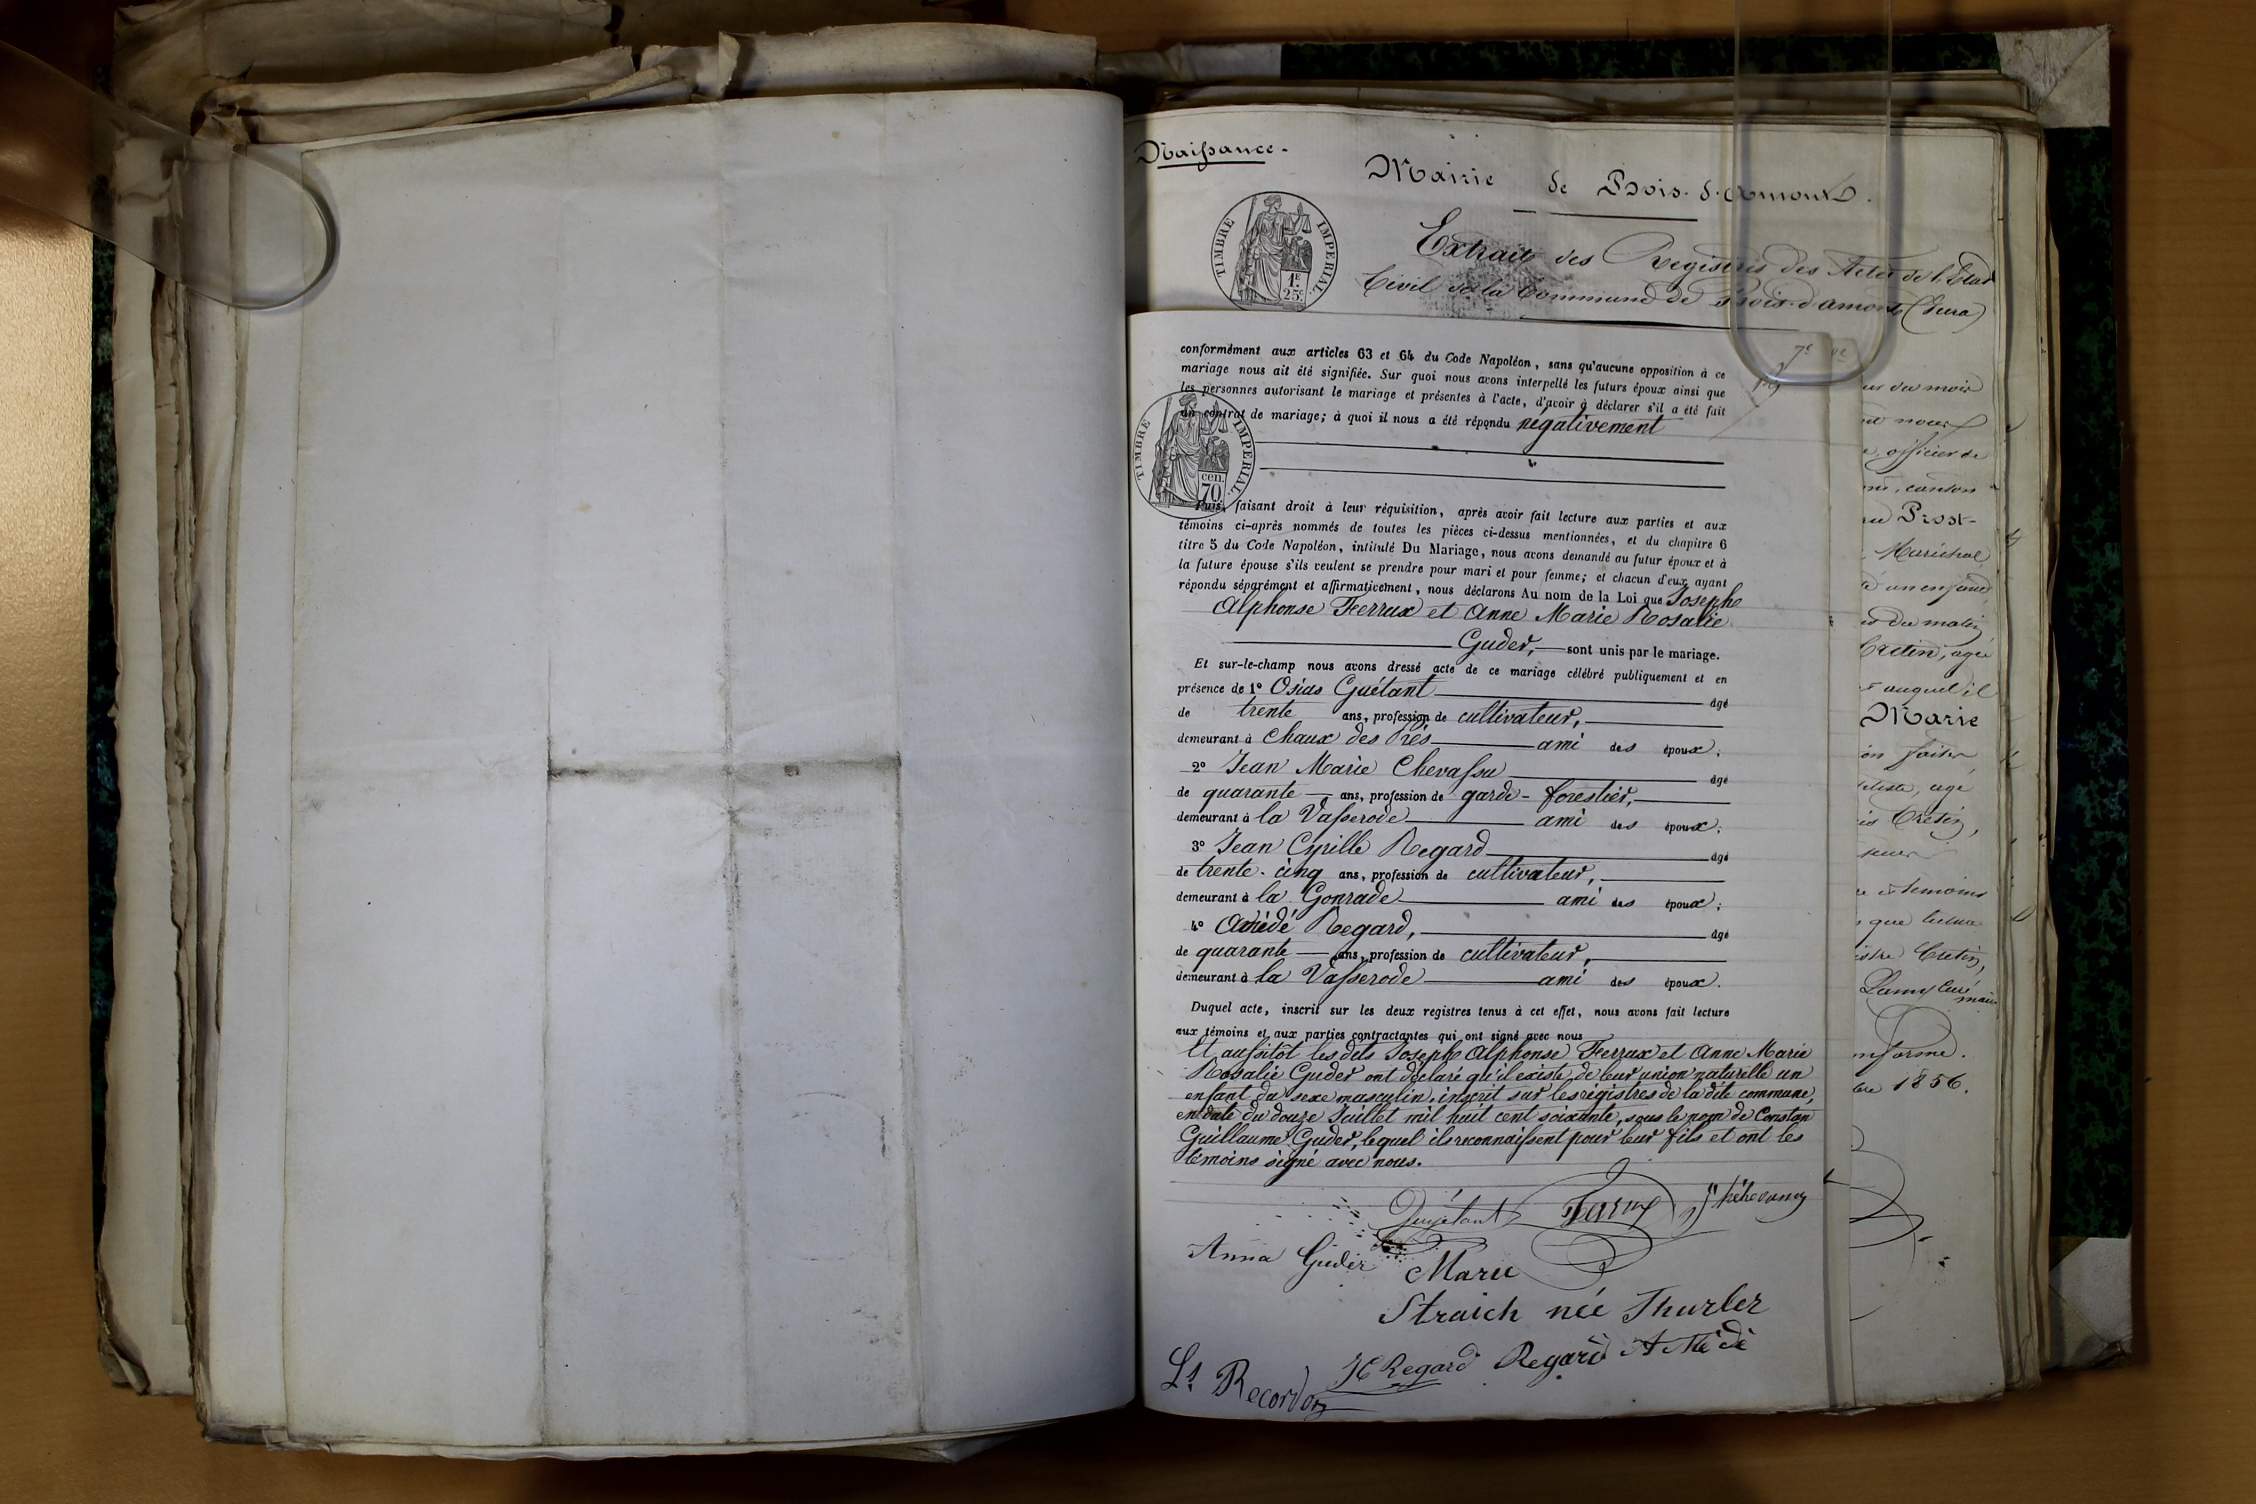 Naissance.
Mairie de Bois-d'Amont.
Extrait des Registres des Actes de l'Etat
Civil de la Commune de Bois-d'amont (Jura)
TIMBRE IMPERIAL
1F.
25c
conformément aux articles 63 et 64 du Code Napoléon, sans qu'aucune opposition à ce
mariage nous ait été signifiée. Sur quoi nous avons interpellé les futurs époux ainsi que
les personnes autorisant le mariage et présentes à l'acte, d'avoir à déclarer s'il a été fait
un contrat de mariage; à quoi il nous a été répondu négativement
TIMBRE IMPERIAL
cen.
70
Puis, faisant droit à leur réquisition, après avoir fait lecture aux parties et aux
témoins ci-après nommés de toutes les pièces ci-dessus mentionnées, et du chapitre 6
titre 5 du Code Napoléon, intitulé Du Mariage, nous avons demandé au futur époux et à
la future épouse s'ils veulent se prendre pour mari et pour femme; et chacun d'eux ayant
répondu séparément et affirmativement, nous déclarons Au nom de la Loi que Joseph
Alphonse Ferrux et Anne Marie Rosalie
Guder, sont unis par le mariage.
Et sur-le-champ nous avons dressé acte de ce mariage célébré publiquement et en
présence de 1° Osias Guétant âgé
de trente ans, profession de cultivateur,
demeurant à Chaux des Prés ami des époux;
2° Jean Marie Chevassu âgé
de quarante ans, profession de garde-forestier,
demeurant à la Vasserode ami des époux;
3° Jean Cyrille Regard âgé
de trente-cinq ans, profession de cultivateur,
demeurant à la Gonrade ami des époux;
4° Amédé Regard, âgé
de quarante ans, profession de cultivateur,
demeurant à la Vasserode ami des époux.
Duquel acte, inscrit sur les deux registres tenus à cet effet, nous avons fait lecture
aux témoins et aux parties contractantes qui ont signé avec nous
Et aussitôt les dits Joseph Alphonse Ferrux et Anne Marie
Rosalie Guder ont déclaré qu'il existe de leur union naturelle un
enfant du sexe masculin, inscrit sur les régistres de la dite commune,
en date du douze Juillet mil huit cent soixante, sous le nom de Constan
Guillaume Guder, lequel ils reconnaissent pour leur fils et ont les
témoins signé avec nous.
Anna Guder Marie
Straich née Thurler
Regard Regard Amédé
Ls Recordon
du mois
officier de
canton
Prost-
Maréchal
un enfant
du matin
Cretin, agé
auquel il
Marie
faite
agé
Cretin,
témoins
que lecture
Cretin,
Lamy Curé
maire
1856.